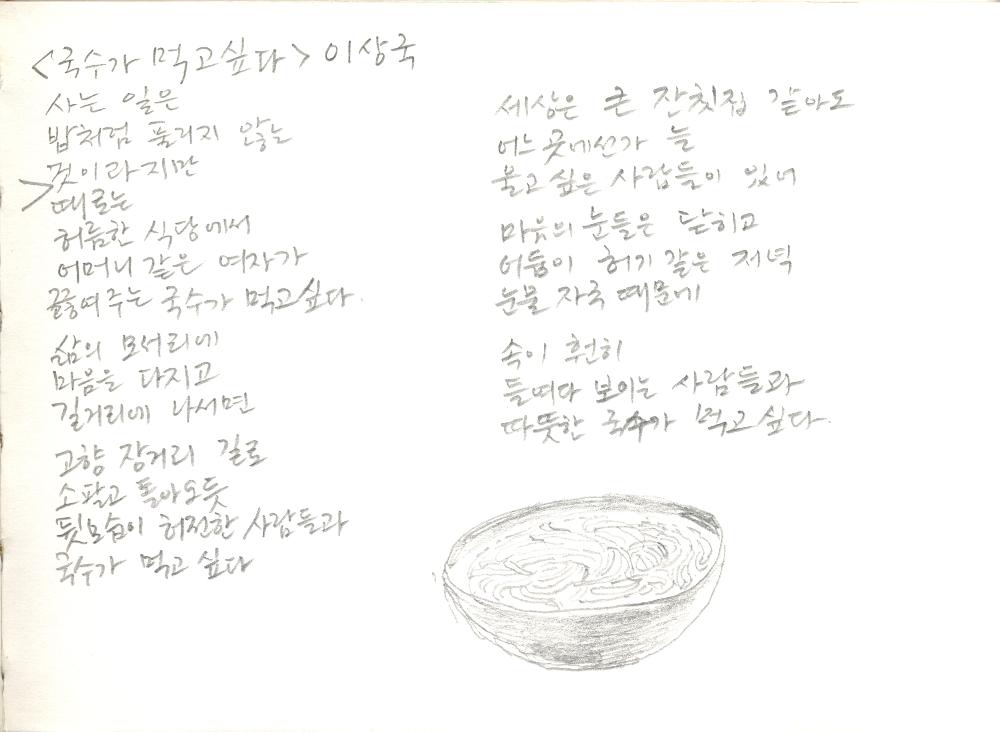 <국수가 먹고싶다> 이상국
사는 일은
밥처럼 물리지 않는
것이라지만
때로는
허름한 식당에서
어머니 같은 여자가
끓여주는 국수가 먹고싶다.
삶의 모서리에
마음을 다치고
길거리에 나서면
고향 장거리 길로
소팔고 돌아오듯
뒷모습이 허전한 사람들과
국수가 먹고 싶다
세상은 큰 잔칫집 같아도
어느 곳에선가 늘
울고 싶은 사람들이 있어
마음의 문들은 닫히고
어둠이 허기 같은 저녁
눈물 자국 때문에
속이 훤히
들여다 보이는 사람들과
따뜻한 국수가 먹고 싶다.